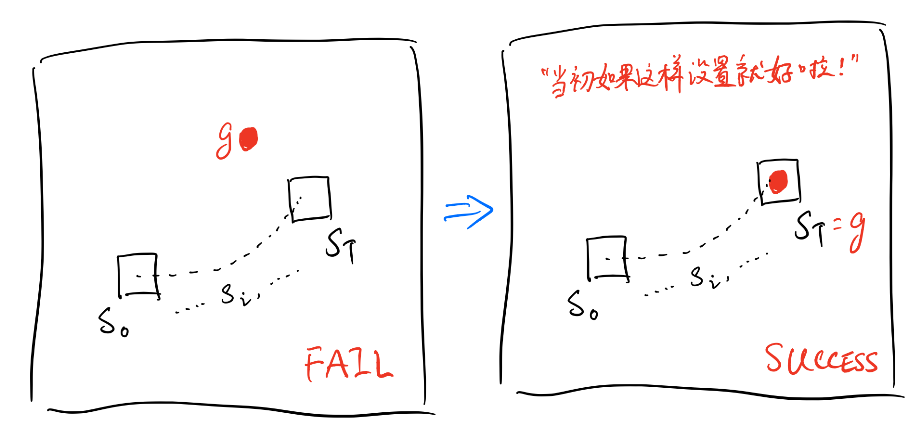 g
S₀
... Sᵢ, ...
S_T
FAIL
"当初如果这样设置就好啦！"
S₀
... Sᵢ, ...
S_T = g
SUCCESS